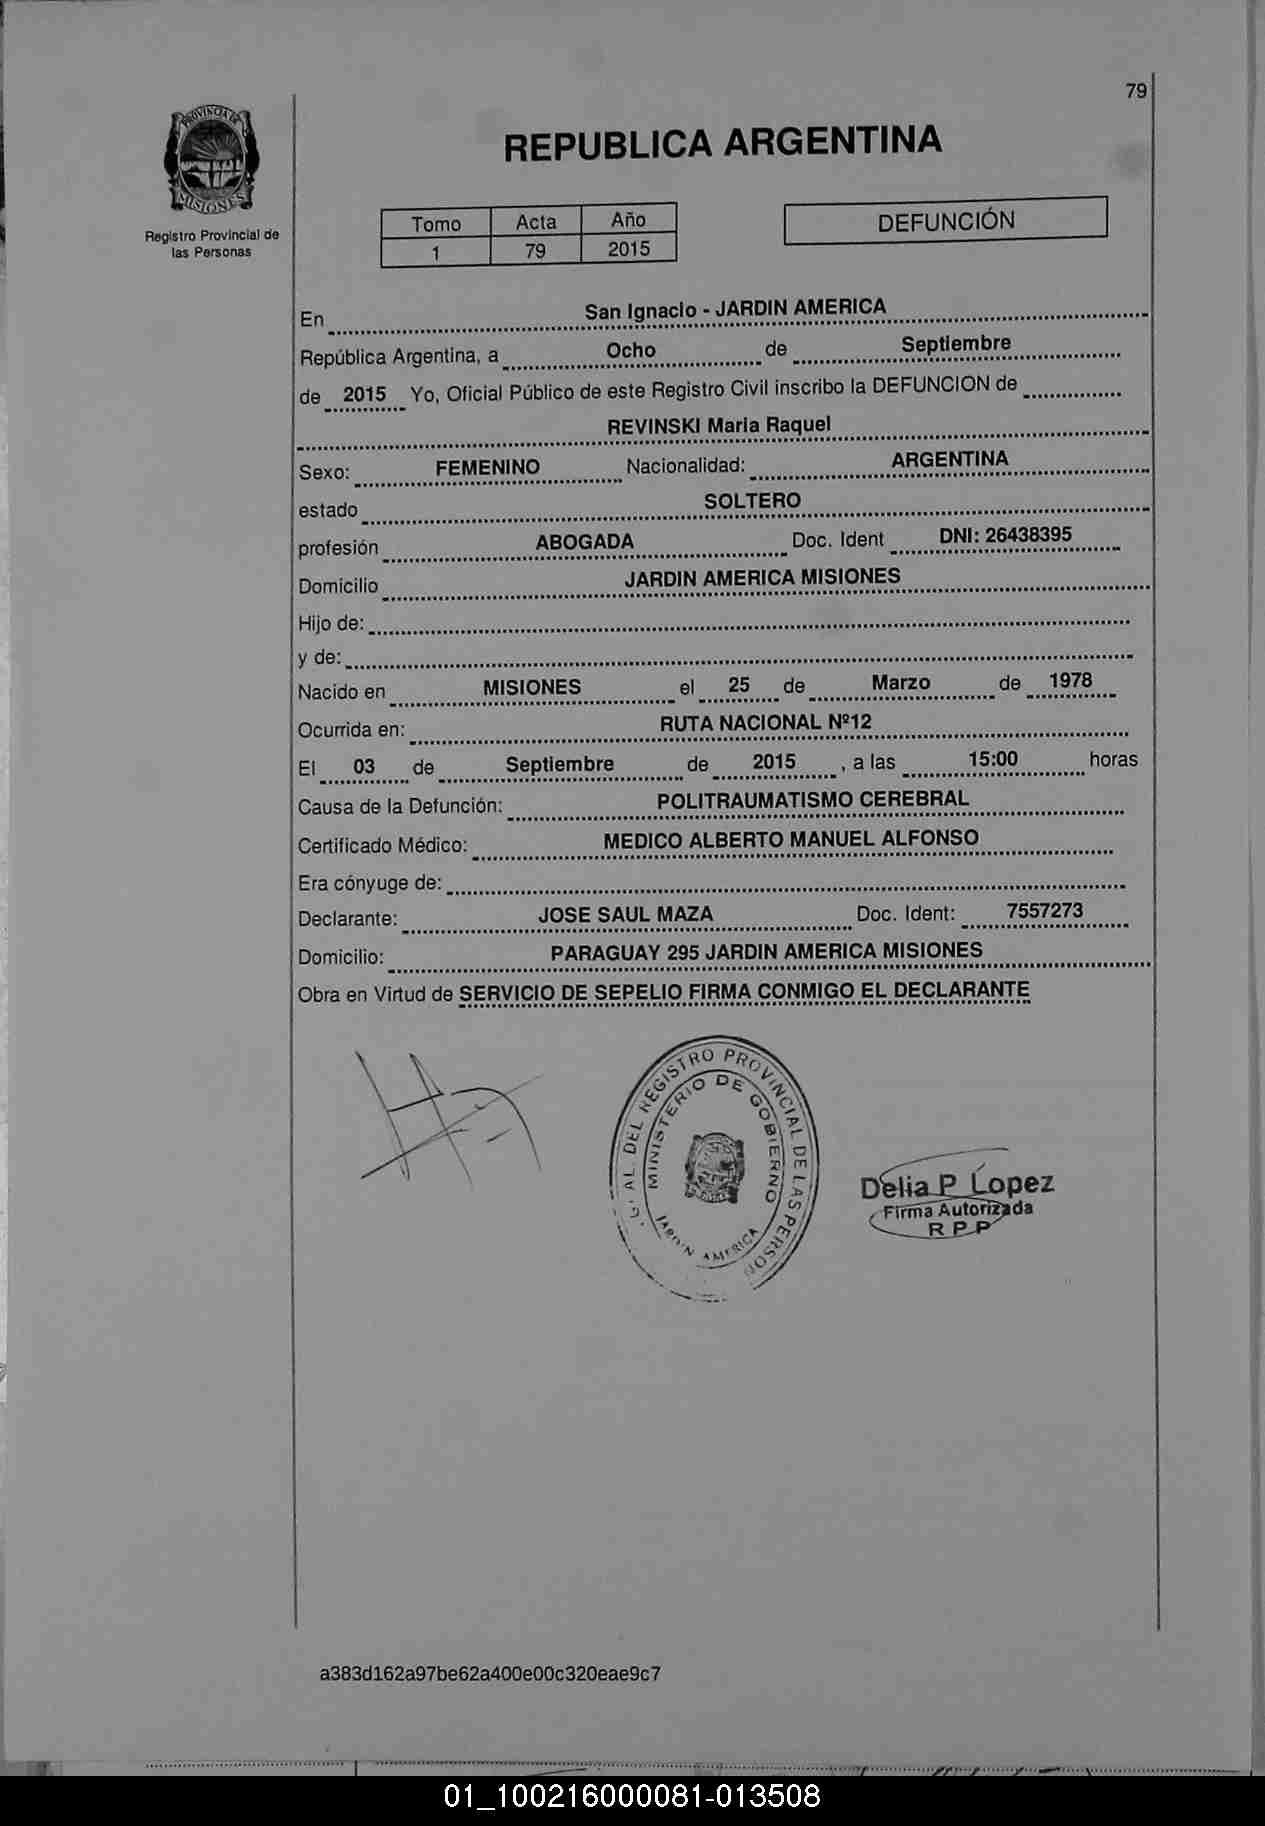 79
PROVINCIA DE
MISIONES
Registro Provincial de
las Personas
REPUBLICA ARGENTINA
Tomo Acta Año
1 79 2015
DEFUNCIÓN
En San Ignacio - JARDIN AMERICA
República Argentina, a Ocho de Septiembre
de 2015 Yo, Oficial Público de este Registro Civil inscribo la DEFUNCION de
REVINSKI Maria Raquel
Sexo: FEMENINO Nacionalidad: ARGENTINA
estado SOLTERO
profesión ABOGADA Doc. Ident DNI: 26438395
Domicilio JARDIN AMERICA MISIONES
Hijo de:
y de:
Nacido en MISIONES el 25 de Marzo de 1978
Ocurrida en: RUTA NACIONAL Nº12
El 03 de Septiembre de 2015 , a las 15:00 horas
Causa de la Defunción: POLITRAUMATISMO CEREBRAL
Certificado Médico: MEDICO ALBERTO MANUEL ALFONSO
Era cónyuge de:
Declarante: JOSE SAUL MAZA Doc. Ident: 7557273
Domicilio: PARAGUAY 295 JARDIN AMERICA MISIONES
Obra en Virtud de SERVICIO DE SEPELIO FIRMA CONMIGO EL DECLARANTE
AL DEL REGISTRO PROVINCIAL DE LAS PERSON
MINISTERIO DE GOBIERNO
JARDIN AMERICA
Delia P Lopez
Firma Autorizada
R P P
a383d162a97be62a400e00c320eae9c7
01_100216000081-013508